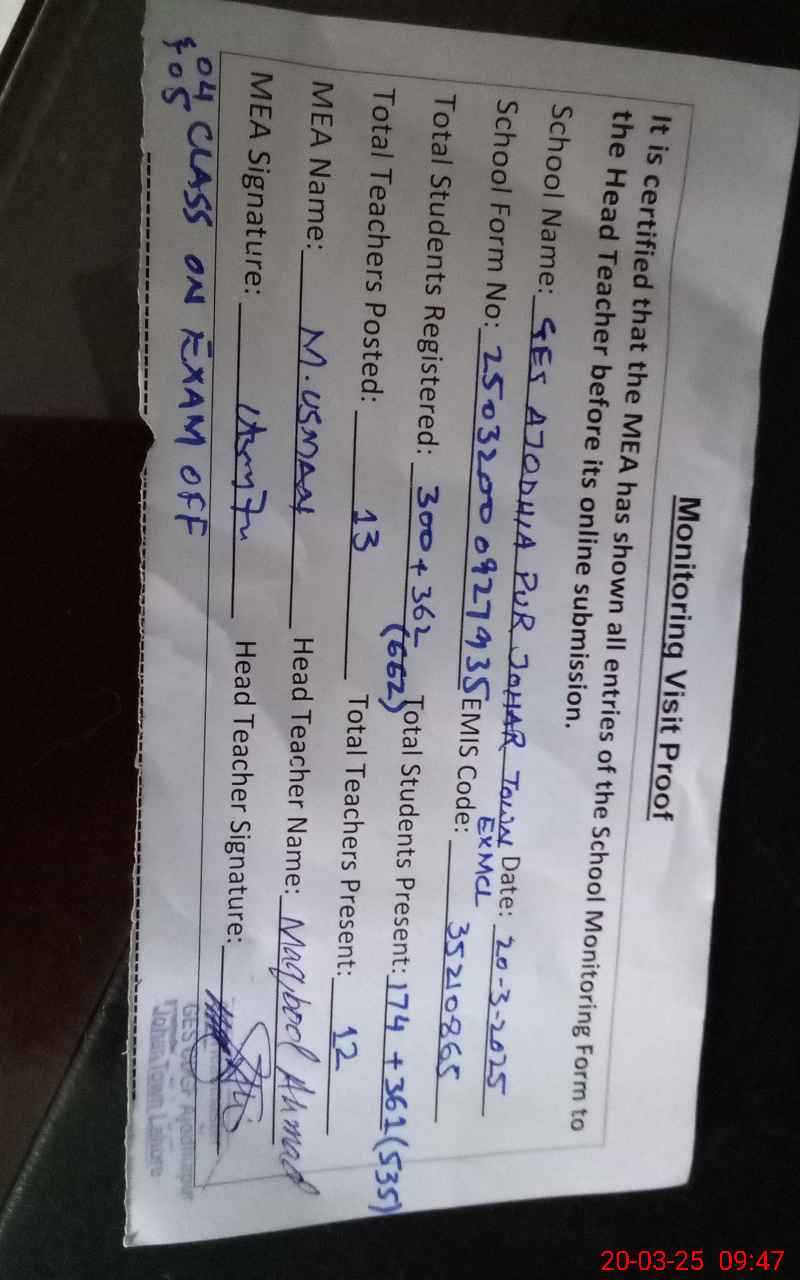 Monitoring Visit Proof
It is certified that the MEA has shown all entries of the School Monitoring Form to
the Head Teacher before its online submission.
School Name: GES AJODHIA PUR JOHAR TOWN EXMCL Date: 20-3-2025
School Form No: 25032000927935 EMIS Code: 35210865
Total Students Registered: 300+362 (662) Total Students Present: 174+361 (535)
Total Teachers Posted: 13 Total Teachers Present: 12
MEA Name: M.USMAN Head Teacher Name: Maqbool Ahmad
MEA Signature: Head Teacher Signature:
04 CLASS ON EXAM OFF
& 05
Johar Town Lahore
20-03-25 09:47